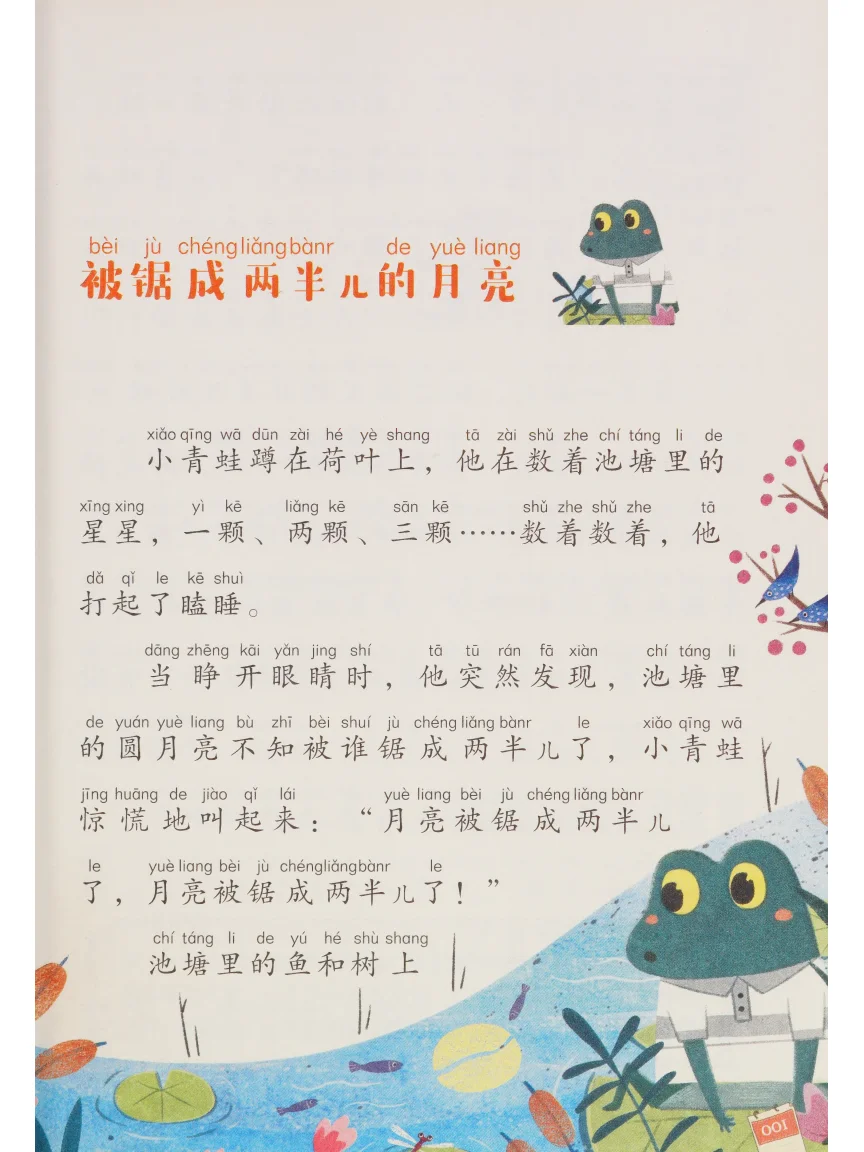 bèi jù chéng liǎng bànr de yuè liang
被锯成两半儿的月亮
xiǎo qīng wā dūn zài hé yè shang tā zài shǔ zhe chí táng li de
小青蛙蹲在荷叶上，他在数着池塘里的
xīng xing yì kē liǎng kē sān kē shǔ zhe shǔ zhe tā
星星，一颗、两颗、三颗……数着数着，他
dǎ qǐ le kē shuì
打起了瞌睡。
dāng zhēng kāi yǎn jing shí tā tū rán fā xiàn chí táng li
当睁开眼睛时，他突然发现，池塘里
de yuán yuè liang bù zhī bèi shuí jù chéng liǎng bànr le xiǎo qīng wā
的圆月亮不知被谁锯成两半儿了，小青蛙
jīng huāng de jiào qǐ lái yuè liang bèi jù chéng liǎng bànr
惊慌地叫起来：“月亮被锯成两半儿
le yuè liang bèi jù chéng liǎng bànr le
了，月亮被锯成两半儿了！”
chí táng li de yú hé shù shang
池塘里的鱼和树上
001